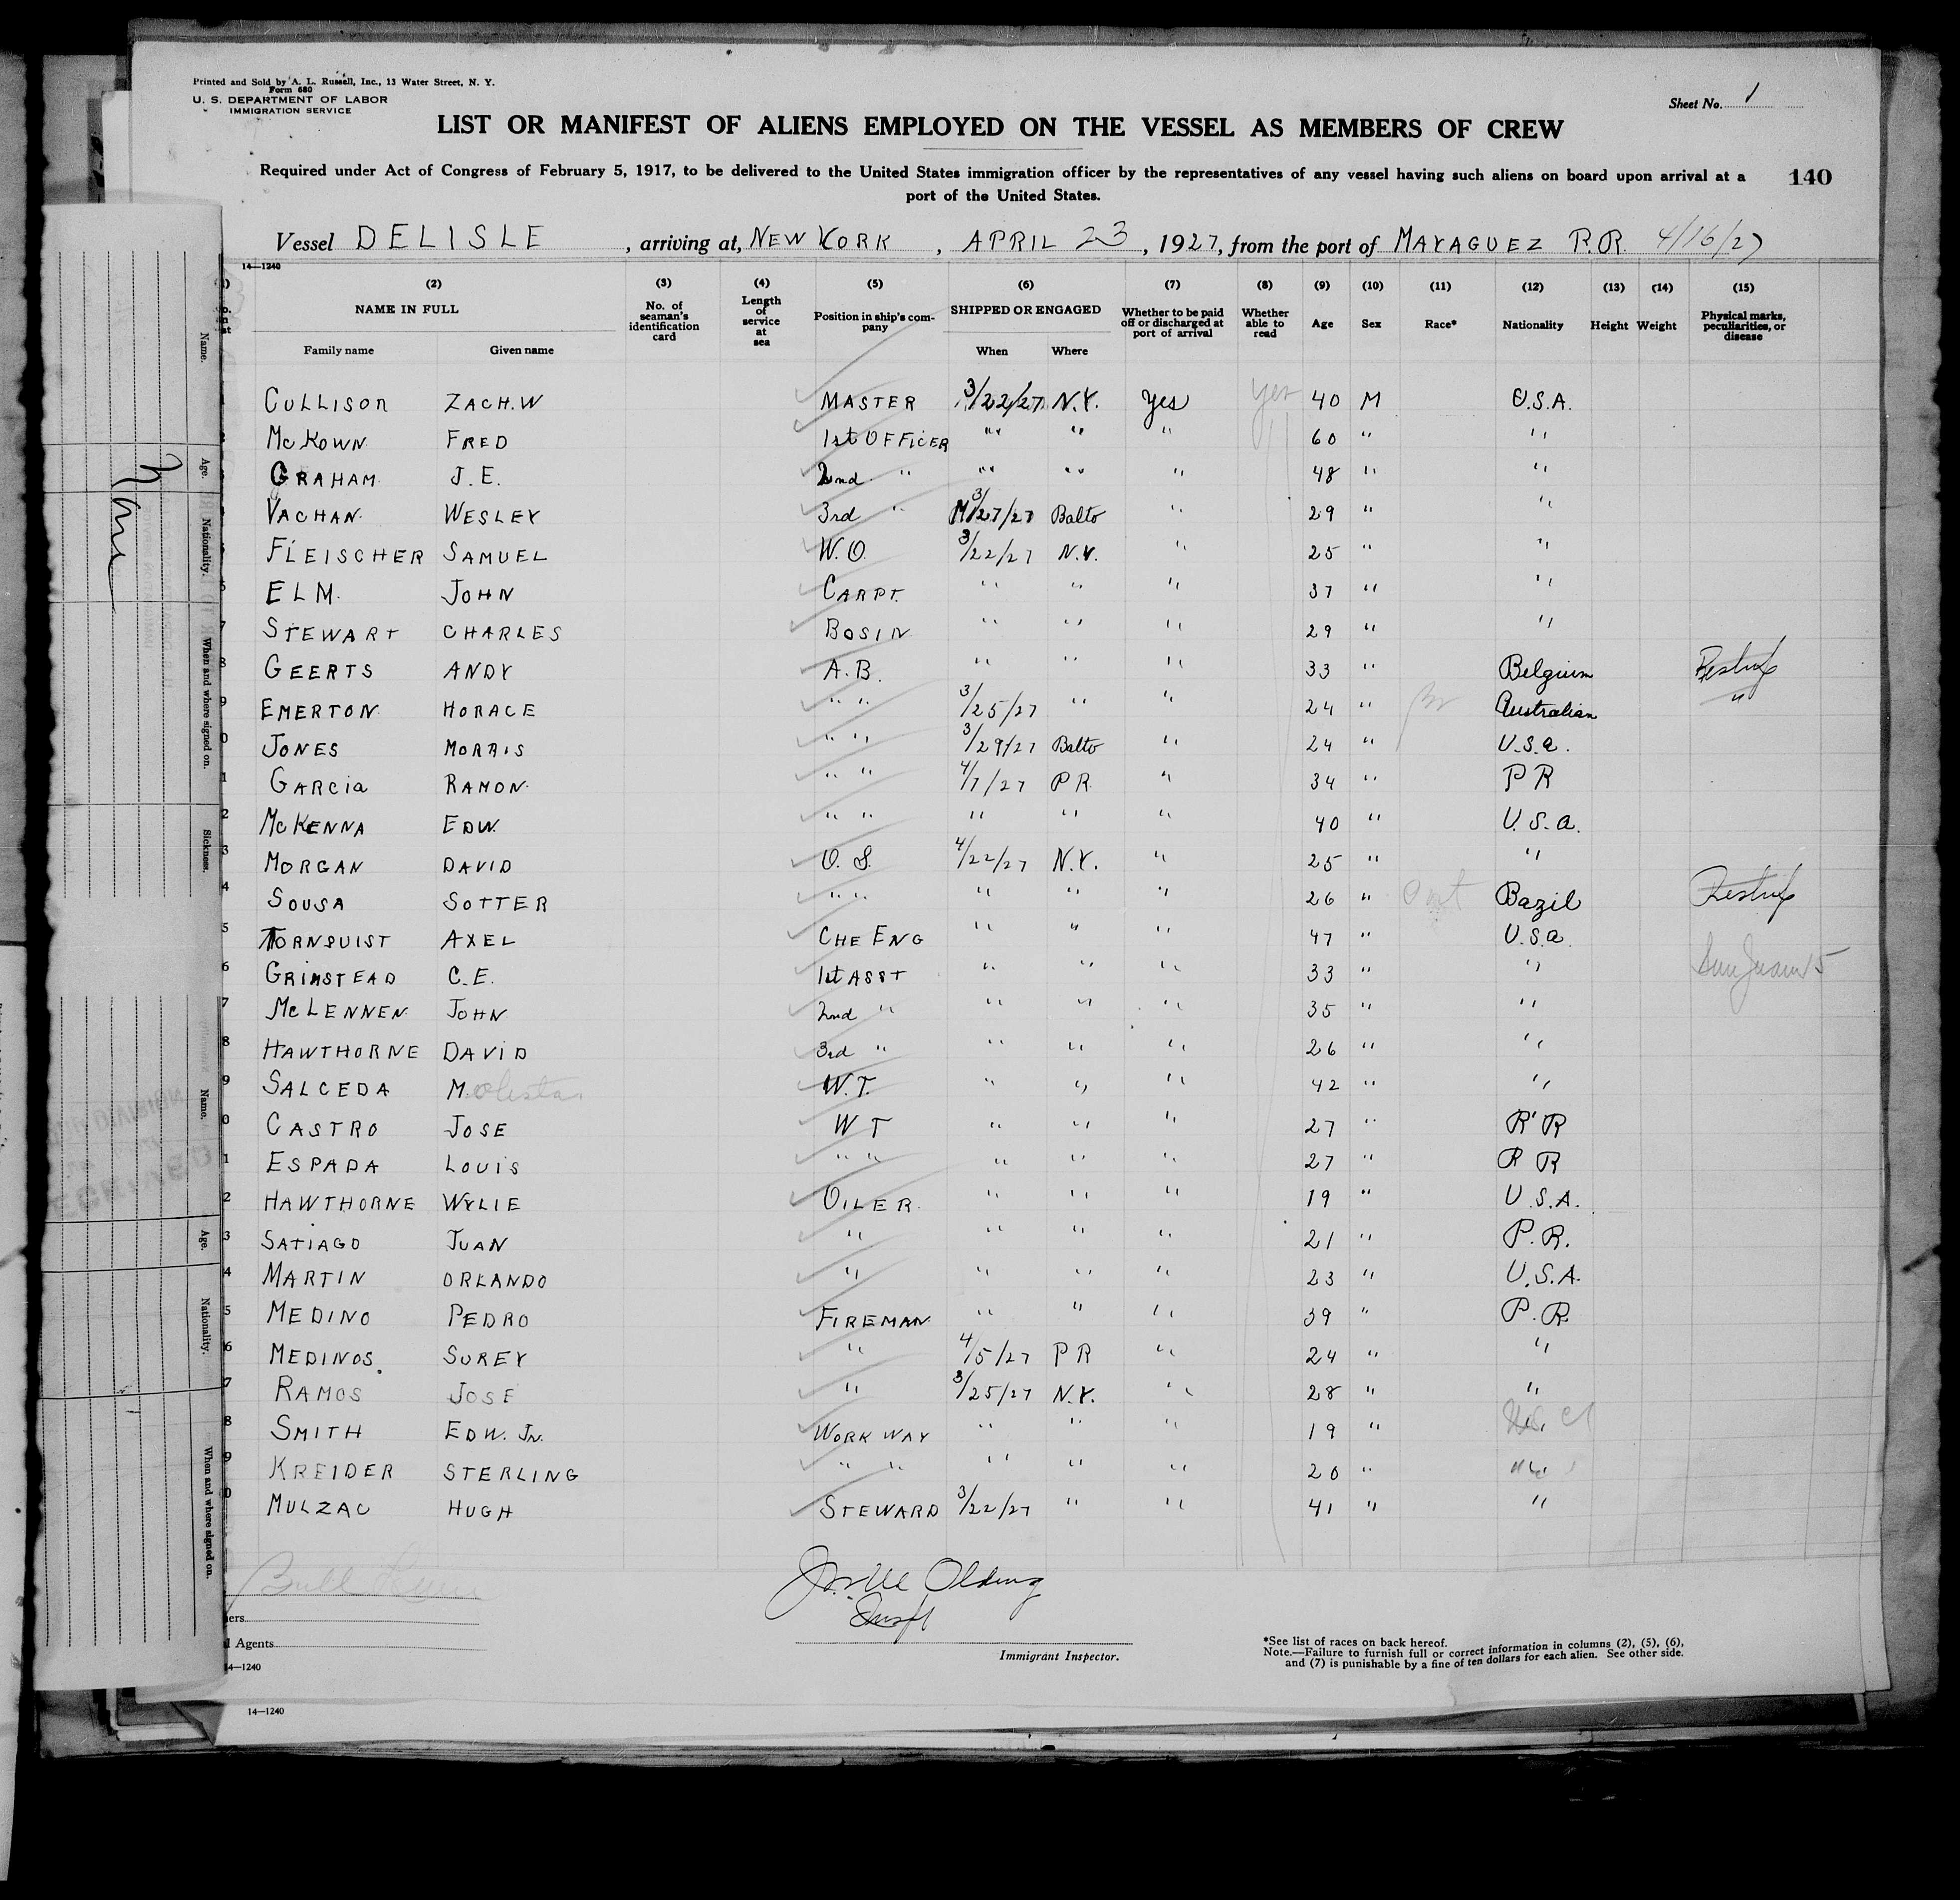 Printed and Sold by A. L. Russell, Inc., 13 Water Street, N. Y.
Form 680
U. S. DEPARTMENT OF LABOR
IMMIGRATION SERVICE
Sheet No. 1
LIST OR MANIFEST OF ALIENS EMPLOYED ON THE VESSEL AS MEMBERS OF CREW
Required under Act of Congress of February 5, 1917, to be delivered to the United States immigration officer by the representatives of any vessel having such aliens on board upon arrival at a
port of the United States.
140
Vessel DELISLE, arriving at, NEW YORK, APRIL 23, 1927, from the port of MAYAGUEZ P.R. 4/16/27
14—1240
(2) (3) (4) (5) (6) (7) (8) (9) (10) (11) (12) (13) (14) (15)
NAME IN FULL
Family name Given name
No. of seaman's identification card
Length of service at sea
Position in ship's company
SHIPPED OR ENGAGED
When Where
Whether to be paid off or discharged at port of arrival
Whether able to read
Age Sex Race* Nationality Height Weight
Physical marks, peculiarities, or disease
CULLISON ZACH.W MASTER 3/22/27 N.Y. Yes yes 40 M U.S.A.
McKOWN FRED 1st OFFICER " " " 60 " "
GRAHAM J.E. 2nd " " " " 48 " "
VACHAN WESLEY 3rd " 3/27/27 Balto " 29 " "
FLEISCHER SAMUEL W.O. 3/22/27 N.Y. " 25 " "
ELM JOHN CARPT. " " " 37 " "
STEWART CHARLES BOSIN " " " 29 " "
8 GEERTS ANDY A.B. " " " 33 " Belgium
9 EMERTON HORACE " " 3/25/27 " " 24 " Australian "
0 JONES MORRIS " " 3/29/27 Balto " 24 " U.S.a.
1 GARCia RAMON " " 4/7/27 P R " 34 " P R
2 McKENNA EDW. " " " " " 40 " U.S.a.
3 MORGAN DAVID O.S. 4/22/27 N.Y. " 25 " "
4 SOUSA SOTTER " " " " " 26 " Bazil
5 TORNQUIST AXEL CHE ENG " " " 47 " U.S.a.
6 GRINSTEAD C.E. 1st ASST " " " 33 " " San Juan
7 McLENNEN JOHN 2nd " " " " 35 " "
8 HAWTHORNE DAVID 3rd " " " " 26 " "
9 SALCEDA M. W.T. " " " 42 " "
0 CASTRO JOSE W T " " " 27 " P R
1 ESPADA LOUIS " " " " " 27 " P R
2 HAWTHORNE WYLIE OILER " " " 19 " U.S.A.
3 SATIAGO JUAN " " " " 21 " P.R.
4 MARTIN ORLANDO " " " " 23 " U.S.A.
5 MEDINO PEDRO FIREMAN " " " 39 " P.R.
6 MEDINOS SUREY " 4/5/27 P R " 24 " "
7 RAMOS JOSE " 3/25/27 N.Y. " 28 " "
8 SMITH EDW. Jr. WORK WAY " " " 19 "
9 KREIDER STERLING " " " " " 20 "
0 MULZAC HUGH STEWARD 3/22/27 " " 41 " "
Olding
Insp
Immigrant Inspector.
ers
l Agents
14—1240
*See list of races on back hereof.
Note.—Failure to furnish full or correct information in columns (2), (5), (6),
and (7) is punishable by a fine of ten dollars for each alien. See other side.
14—1240
Name.
Age.
Nationality.
When and where signed on.
Sickness.
None
Name.
Age.
Nationality.
When and where signed on.